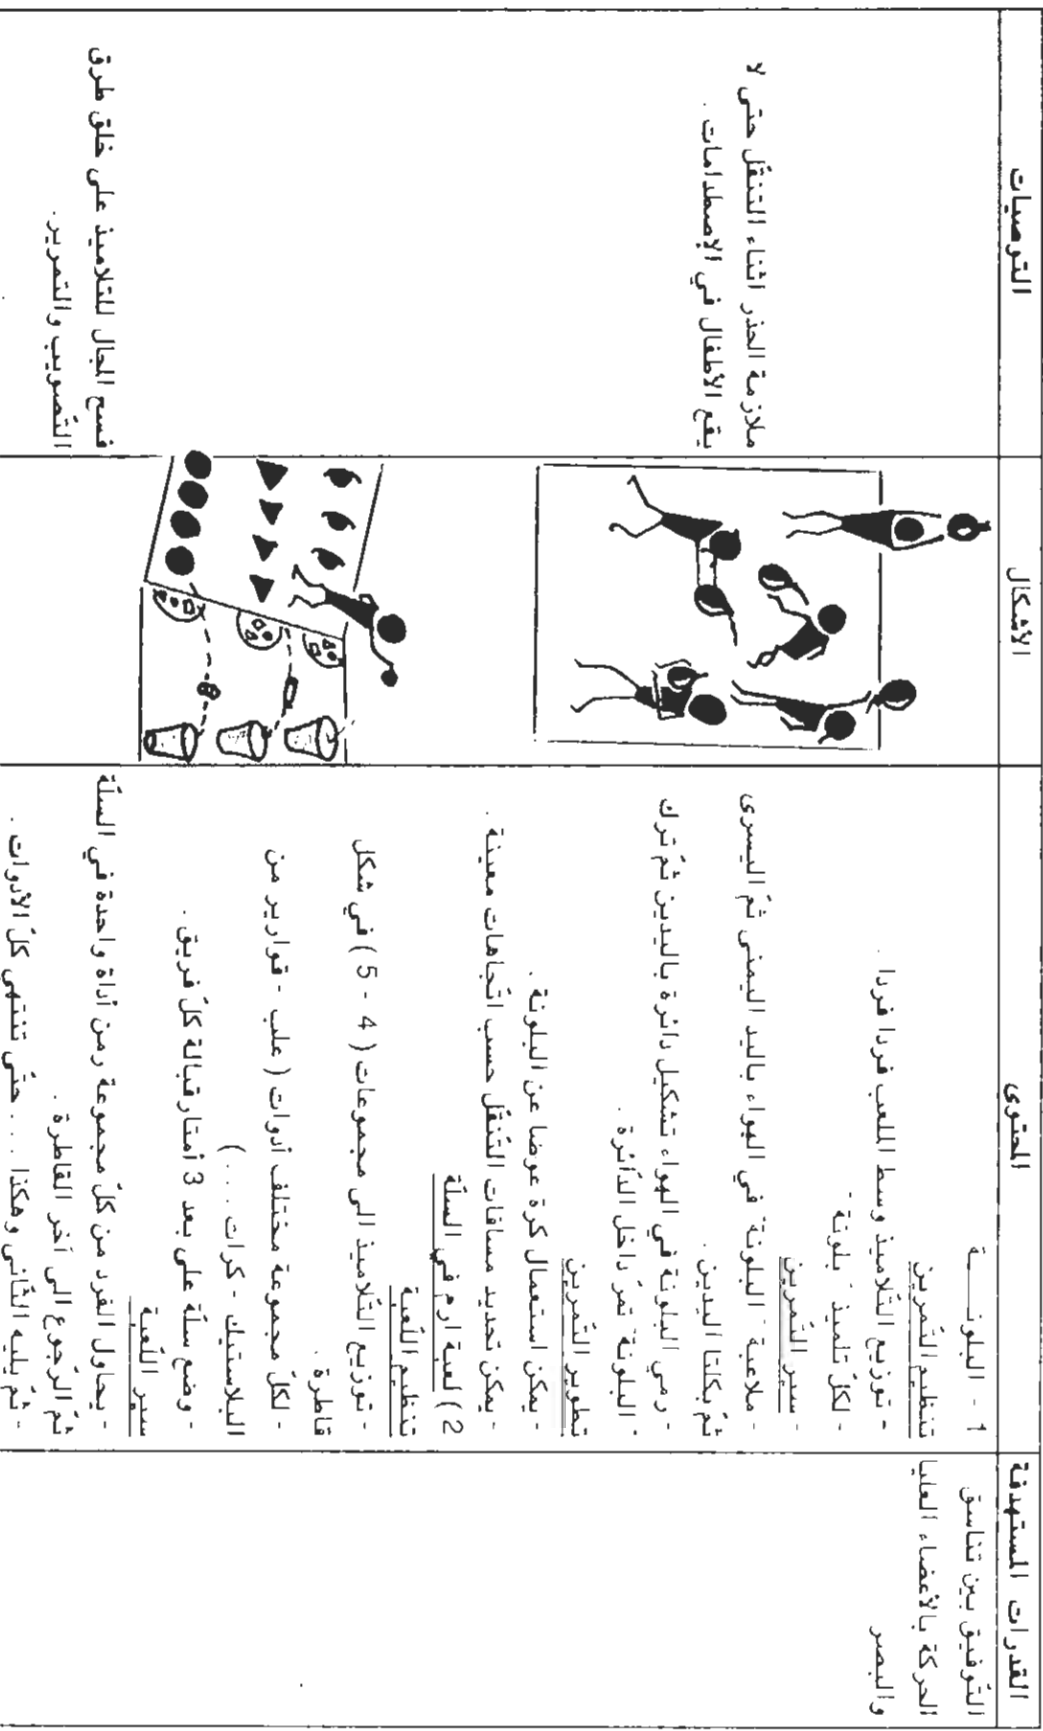 القدرات المستهدفة
المحتوى
الأشكال
التوصيات
التوفيق بين تناسق
الحركة بالأعضاء العليا
والبصر
1 - البلونــــة
تنظيم التمرين
- توزيع التلاميذ وسط الملعب فردا فردا .
- لكل تلميذ "بلونة"
- سير التمرين
- ملاعبة "البلونة" في الهواء باليد اليمنى ثمّ اليسرى
ثمّ بكلتا اليدين .
- رمي البلونة في الهواء تشكيل دائرة باليدين ثمّ ترك
"البلونة" تمرّ داخل الدّائرة .
تطوير التّمرين
- يمكن استعمال كرة عوضا عن البلونة .
- يمكن تحديد مسافات التّنقّل حسب اتّجاهات معينة .
2) لعبة ارم في السلّة
تنظيم اللّعبة
- توزيع التّلاميذ الى مجموعات ( 4 - 5 ) في شكل
قاطرة .
- لكلّ مجموعة مختلف أدوات ( علب - قوارير من
البلاستيك - كرات . . . )
- وضع سلّة على بعد 3 أمتار قبالة كلّ فريق .
سير اللّعبة
- يحاول الفرد من كلّ مجموعة رمي أداة واحدة في السلّة
ثمّ الرّجوع الى آخر القاطرة .
- ثمّ يليه الثّاني وهكذا . . . حتّى تنتهي كلّ الأدوات .
ملازمة الحذر اثناء التنقّل حتى لا
يقع الأطفال في الإصطدامات .
فسح المجال للتلاميذ على خلق طرق
التّصويب والتّمرير .